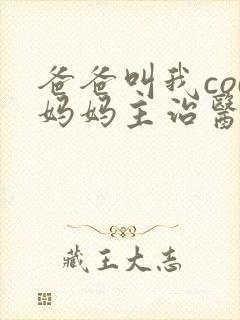 爸爸叫我co
妈妈主治醫
藏王大志